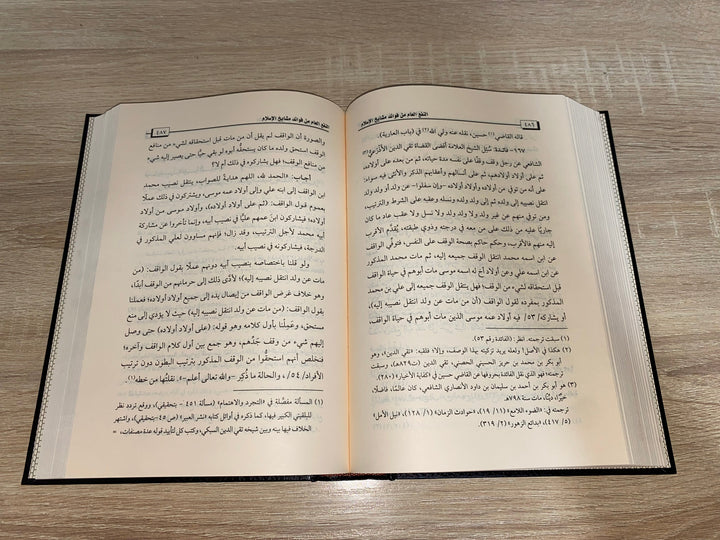 ٤٨٦ النفع العام من فوائد مشايخ الإسلام
قاله القاضي(١) حسين، نقله عنه ولي الله(٢) في (باب العارية).
١٩٧- فائدة: سُئِل الشيخ العلامة أقضى القضاة تقي الدين الأذرعي(٣)
الشافعي عن رجل وقف وقفًا على نفسه مدة حياته، ثم من بعده على أولاده،
ثم على أولاد أولادهم، ثم على أنسالهم وأعقابهم الذكر والأنثى فيه سواء،
على أنه من توفي من أولاده وأولاد أولاده -وإن سفلوا- عن ولد أو ولد ولد
انتقل نصيبه إلى ولده ثم إلى ولد ولده ونسله وعقبه على الشرط والترتيب،
ومن توفي منهم عن غير ولد ولا ولد ولد ولا نسل ولا عقب عاد ما كان
جاريًا عليه من ذلك على من معه في درجته وذوي طبقته، يُقدَّم الأقرب
إليه منهم فالأقرب، وحكم حاكم بصحة الوقف على النفس، فتوفي الواقف
عن ابن اسمه محمد انتقل الوقف جميعه إليه، ثم مات محمد المذكور
عن ابن اسمه علي وعن أولاد أخ له اسمه موسى مات أبوهم في حياة الواقف
قبل استحقاقه لشيء من الوقف؛ فهل ينتقل الوقف جميعه إلى علي ابن محمد
المذكور بمفرده لقول الواقف (أن من مات عن ولد انتقل نصيبه إليه)،
أو يشاركه/ ٥٣/ فيه أولاد عمه موسى الذين مات أبوهم في حياة الواقف،
(١) سبقت ترجمته. انظر: (الفائدة رقم ٥٣).
(٢) هكذا في الأصل! ولعله يريد تزكيته بهذا الوصف، وإلا؛ فلقبه: «تقي الدين»، وهو
أبو بكر بن محمد بن حريز الحسيني الحصني، تقي الدين (ت٨٢٩هـ)، وسبقت
ترجمته؛ فهو الذي نقل الفائدة بحروفها عن القاضي حسين في «كفاية الأخيار» (٢٨٠).
(٣) هو أبو بكر بن أحمد بن سليمان بن داود الأنصاري الشافعي، كان عالمًا، فاضلًا،
خيرًا، دينًا، مات سنة ٨٩٨هـ.
ترجمته في: «الضوء اللامع» (١١/ ١٩)، «حوادث الزمان» (١/ ١٢٨)، «نيل الأمل»
(٥/ ٤١٧)، «بدائع الزهور» (٢/ ٣١٩).
النفع العام من فوائد مشايخ الإسلام ٤٨٧
والصورة أن الواقف لم يقل أن من مات قبل استحقاقه لشيء من منافع
الوقف استحق ولده ما كان يستحقُّه أبوه لو بقي حيًّا حتى يصير إليه شيء
من منافع الوقف؛ فهل يشاركوه في ذلك أم لا؟
أجاب: «الحمد لله، اللهم هداية للصواب، ينتقل نصيب محمد
ابن الواقف إلى ابنه علي وإلى أولاد عمه موسى، ويشتركون في ذلك عملًا
بعموم قول الواقف: (ثم على أولاد أولاده)، وأولاد موسى من أولاد
أولاده؛ فيشاركون ابن عمهم عليًّا في نصيب أبيه، وإنما تأخروا عن مشاركة
أبيه محمد لأجل الترتيب، وقد زال؛ فإنهم مساوون لعلي المذكور في
الدرجة، فيشاركونه في نصيب أبيه.
ولو قلنا باختصاصه بنصيب أبيه دونهم عملًا بقول الواقف: (من
مات عن ولد انتقل نصيبه إليه)؛ لأدَّى ذلك إلى حرمانهم من الوقف أبدًا،
وهو خلاف غرض الواقف من إيصال يده إلى جميع أولاد أولاده؛ فعملنا
بقول الواقف: (من مات عن ولد انتقل نصيبه إليه) حيث لا يؤدي إلى منع
مستحق، وعَمِلْنا بأول كلامه وهو قوله: (على أولاد أولاده) حتى وصل
إليهم شيء من وقف جَدِّهم، وهو جمع بين أول كلام الواقف وآخره؛
فتخلص أنهم استحقُّوا من الوقف المذكور بترتيب البطون دون ترتيب
الأفراد/ ٥٤/، والحالة ما ذُكِر -والله تعالى أعلم-». نقلتُها من خطه(١).
(١) المسألة مفصَّلة في «التجرد والاهتمام» (مسألة ٤٥١ - بتحقيقي)، ووقع تردد نظر
للبلقيني الكبير فيها، كما ذكره في أوائل كتابه «نشر العبير» (ص٤٥ - بتحقيقي)، واشتهر
الخلاف فيها بينه وبين شيخه تقي الدين السبكي، وكتب كل لتأييد قوله عدة مصنفات، =